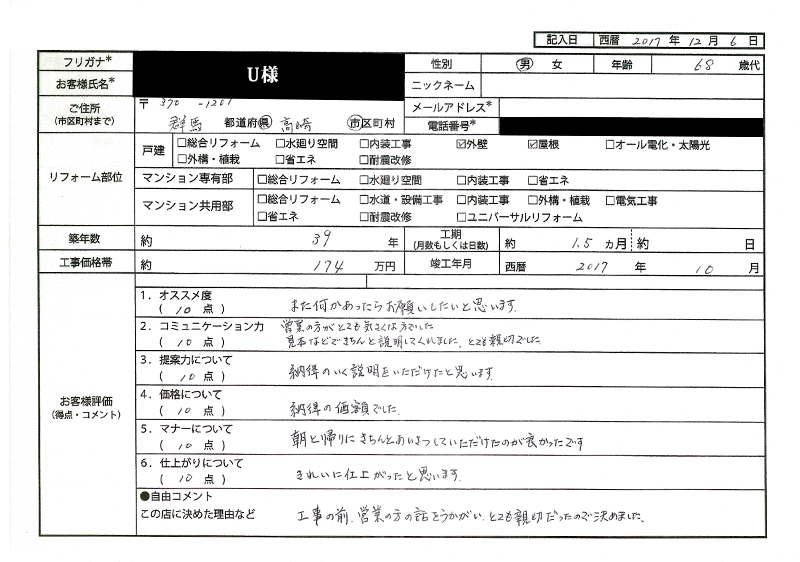 記入日 西暦 2017 年 12 月 6 日
フリガナ*
お客様氏名*
U様
性別 男 女 年齢 68 歳代
ニックネーム
ご住所
(市区町村まで)
〒 370 -1201
群馬 都道府県 高崎 市区町村
メールアドレス*
電話番号*
リフォーム部位
戸建 □総合リフォーム □水廻り空間 □内装工事 ☑外壁 ☑屋根 □オール電化・太陽光
□外構・植栽 □省エネ □耐震改修
マンション専有部 □総合リフォーム □水廻り空間 □内装工事 □省エネ
マンション共用部 □総合リフォーム □水道・設備工事 □内装工事 □外構・植栽 □電気工事
□省エネ □耐震改修 □ユニバーサルリフォーム
築年数 約 39 年 工期 (月数もしくは日数) 約 1.5 ヵ月 約 日
工事価格帯 約 174 万円 竣工年月 西暦 2017 年 10 月
お客様評価
(得点・コメント)
1．オススメ度
( 10 点 ) また何かあったらお願いしたいと思います.
2．コミュニケーション力 営業の方がとても気さくな方でした
( 10 点 ) 見本などできちんと説明してくれました. とても親切でした
3．提案力について
( 10 点 ) 納得のいく説明をいただけたと思います
4．価格について
( 10 点 ) 納得の価額でした.
5．マナーについて
( 10 点 ) 朝と帰りにきちんとあいさつしていただけたのが良かったです
6．仕上がりについて
( 10 点 ) きれいに仕上がったと思います.
●自由コメント
この店に決めた理由など 工事の前、営業の方の話をうかがい、とても親切だったので決めました.